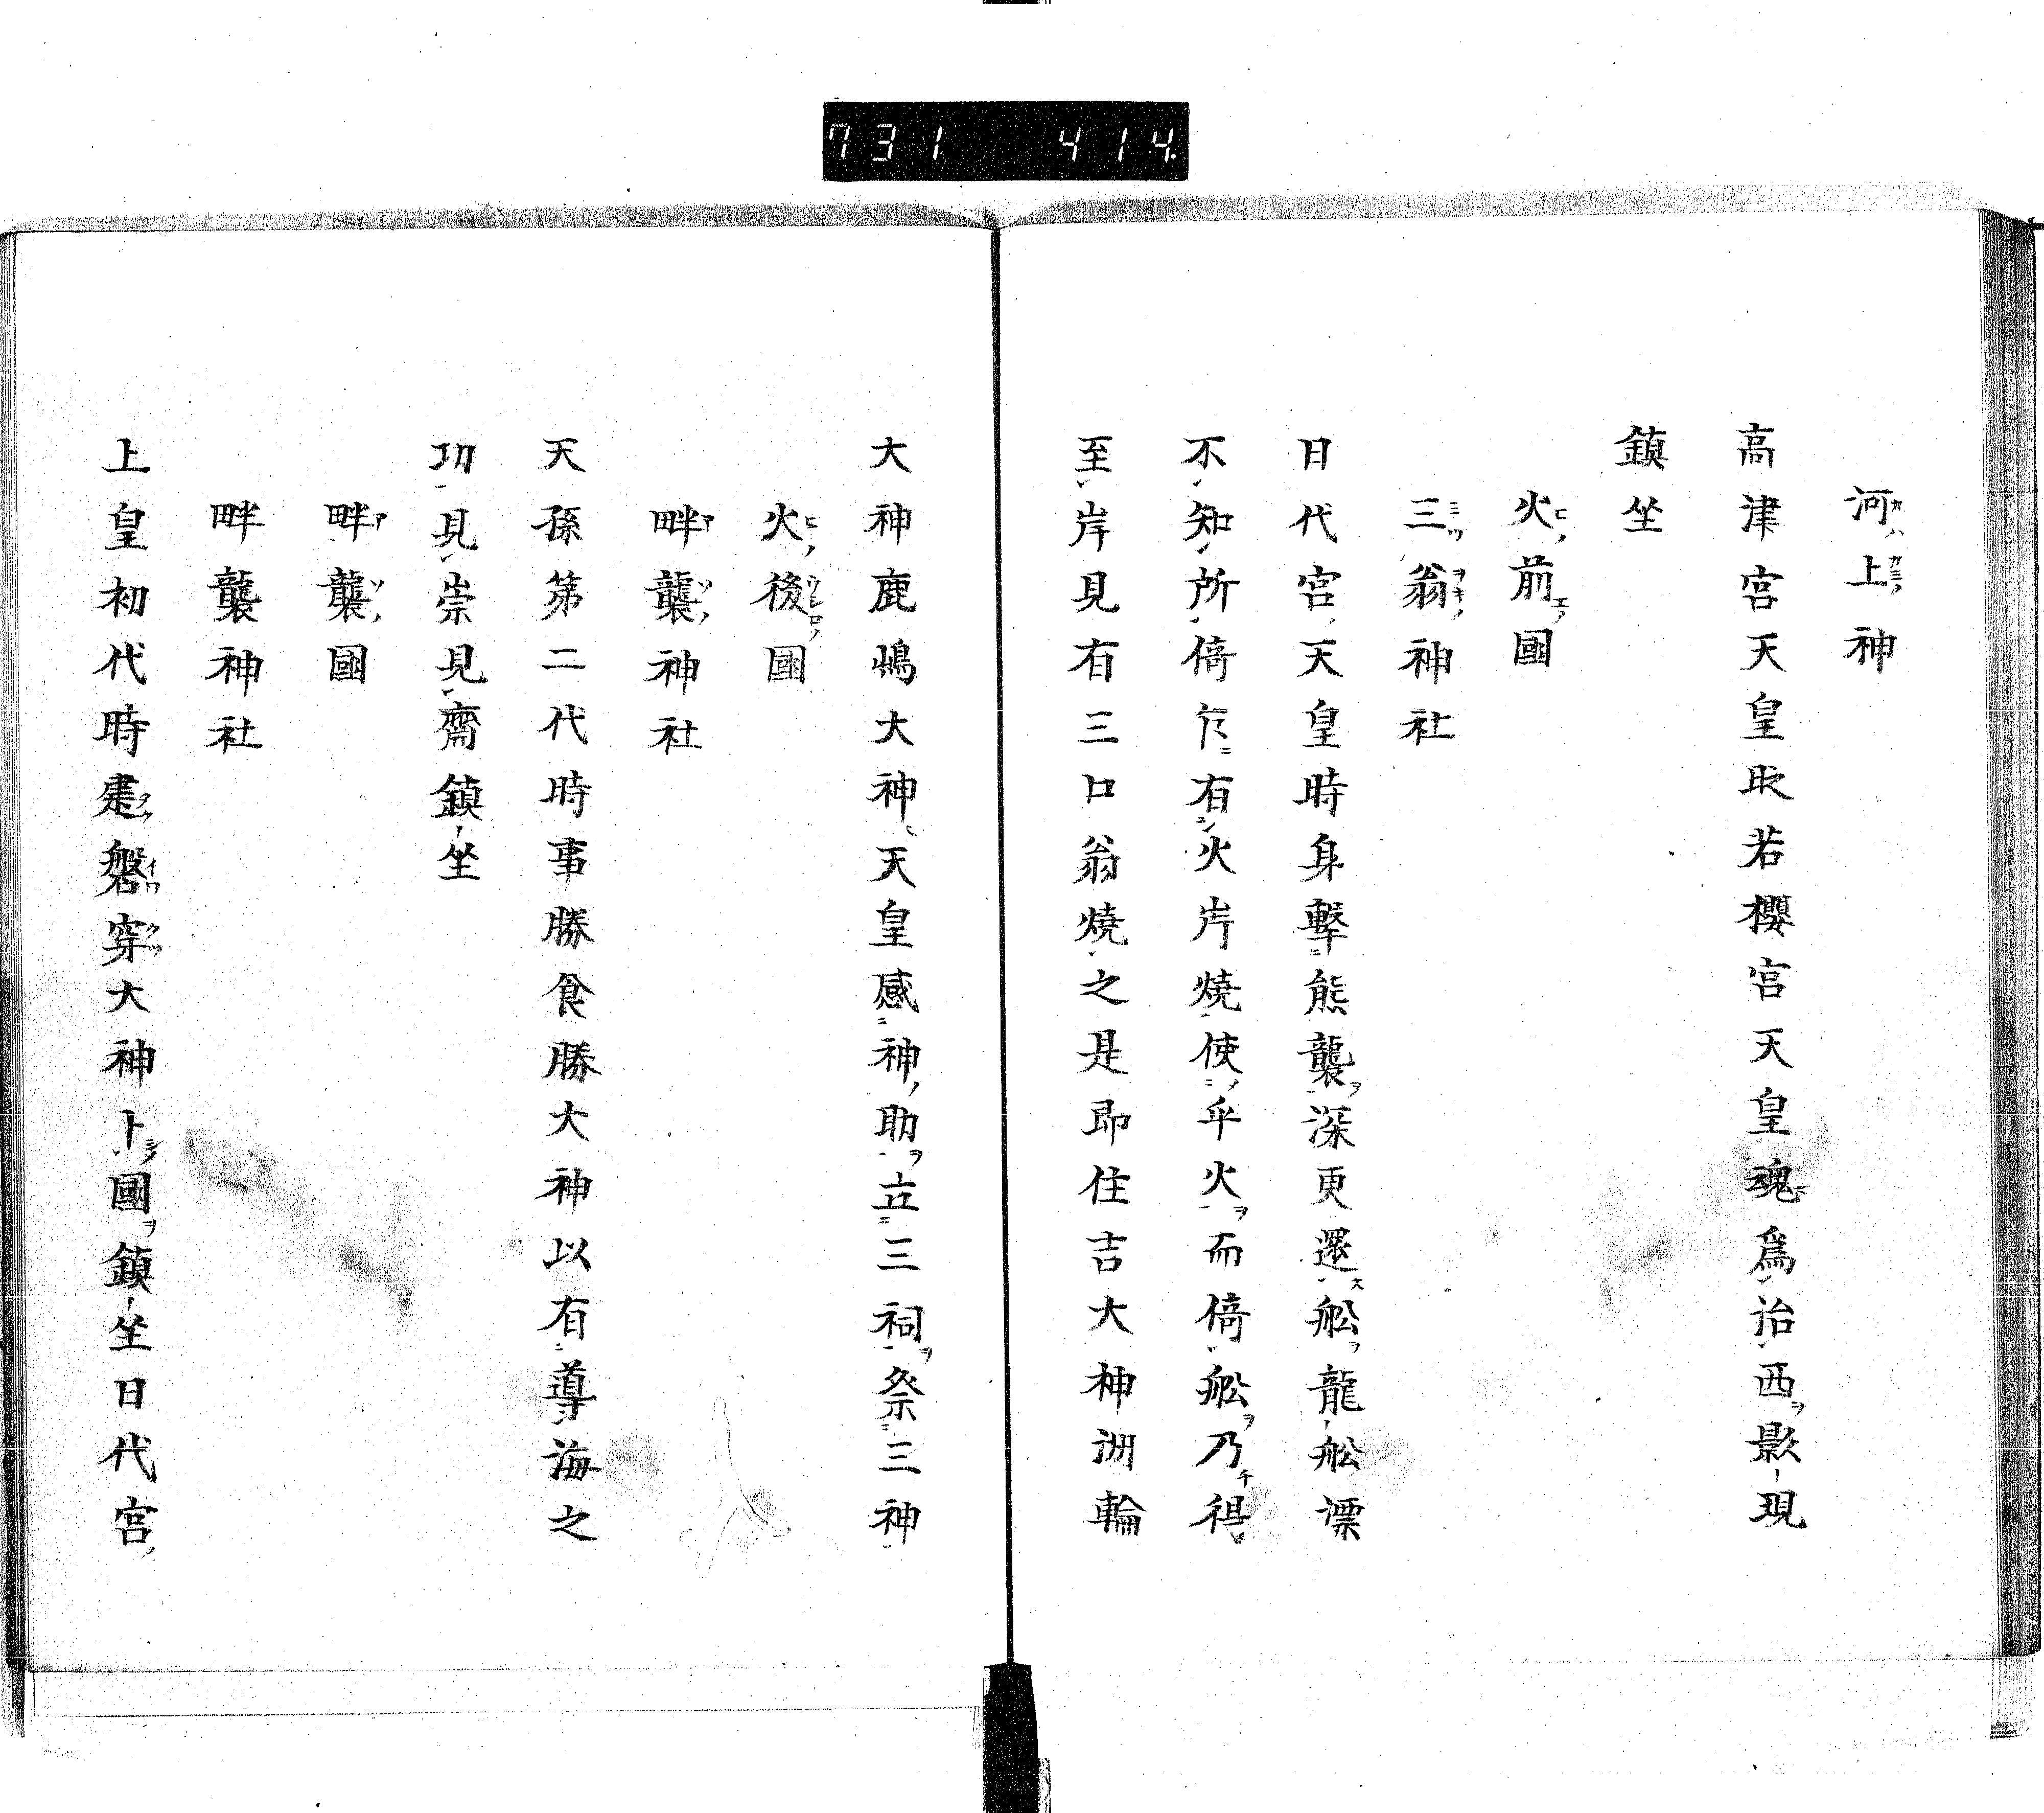 731 414
河上神
高津宮天皇取若櫻宮天皇魂爲治西影現
鎮坐
火前國
三翁神社
日代宮天皇時身擊熊襲深更還舩龍舩漂
不知所倚乍有火片燒使乎火而倚舩乃得
至岸見有三口翁燒之是即住吉大神洲輪
大神鹿嶋大神天皇感神助立三祠祭三神
火後國
畔襲神社
天孫第二代時事勝食勝大神以有導海之
功見崇見齋鎮坐
畔襲國
畔襲神社
上皇初代時建磐穿大神卜國鎮坐日代宮